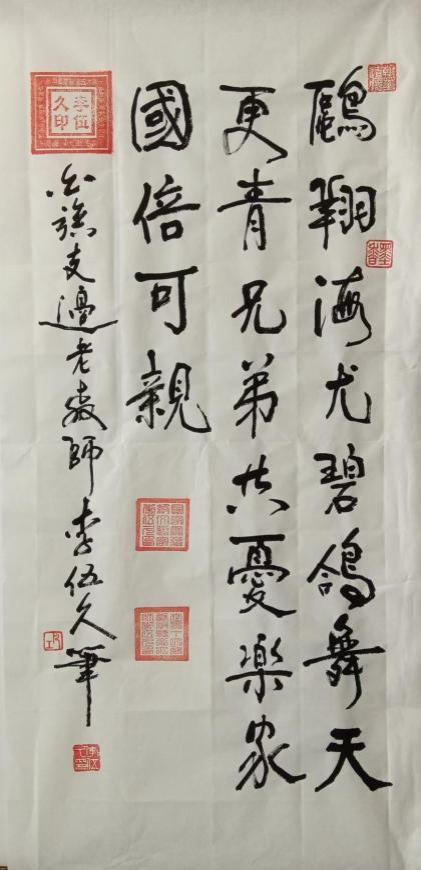 鷗翔海尤碧鴿舞天
更青兄弟共憂樂家
國倍可親
白族支邊老教師李伍久筆
李伍久印
墨香